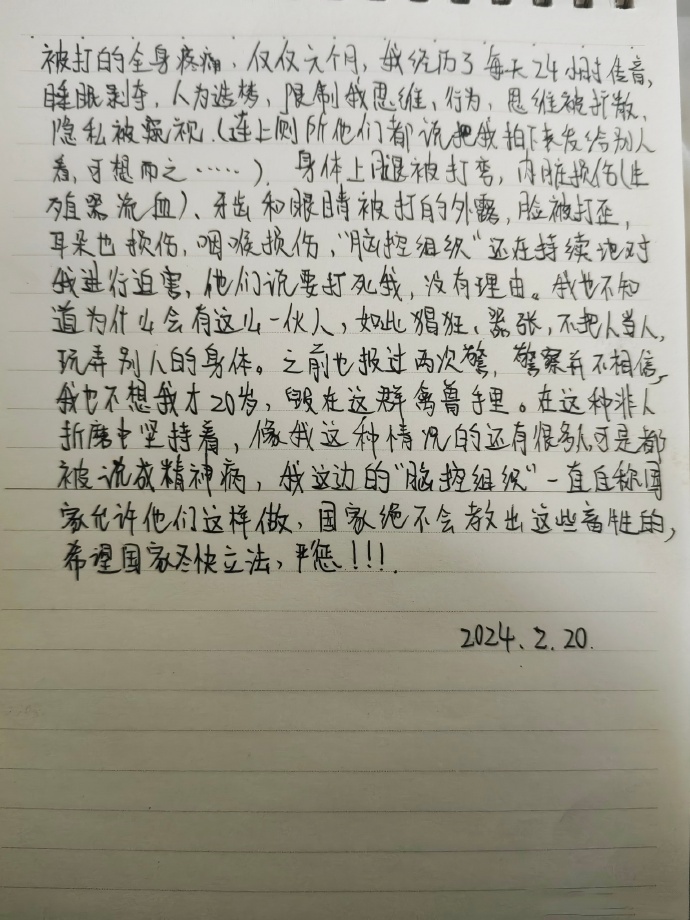 被打的全身疼痛，仅仅六个月，我经历了每天24小时传音，
睡眠剥夺，人为造梦，限制我思维，行为，思维被打散，
隐私被窥视（连上厕所他们都说把我拍下来发给别人
看，可想而之……），身体上腿被打弯，内脏损伤（生
殖器流血）、牙齿和眼睛被打的外露，脸被打歪，
耳朵也损伤，咽喉损伤，“脑控组织”还在持续地对
我进行迫害，他们说要打死我，没有理由。我也不知
道为什么会有这么一伙人，如此猖狂、嚣张，不把人当人，
玩弄别人的身体。之前也报过两次警，警察并不相信，
我也不想我才20岁，毁在这群禽兽手里。在这种非人
折磨中坚持着，像我这种情况的还有很多人可是都
被说成精神病，我这边的“脑控组织”一直自称国
家允许他们这样做，国家绝不会教出这些畜牲的，
希望国家尽快立法，严惩！！！.
2024.2.20.